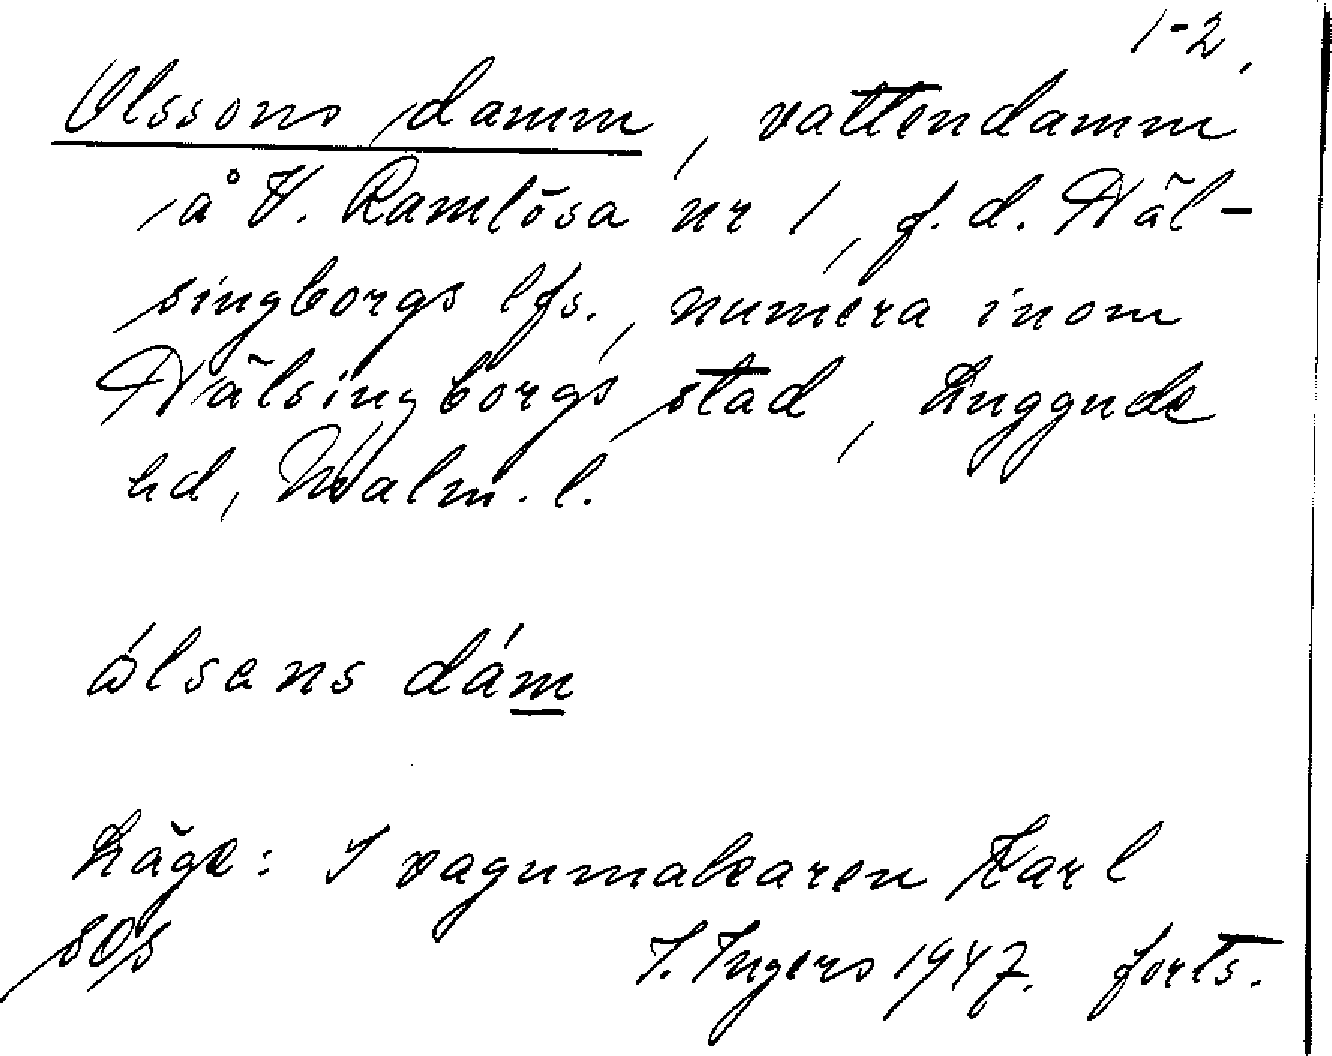 1-2.
Olssons damm, vattendamm
å V. Ramlösa nr 1, f.d. Häl-
singborgs lfs., numera inom
Hälsingborgs stad, Luggude
hd, Malm. l.
ólsans dám
Läge: I vagnmakaren Karl
sOs I. Ingers 1947. forts.